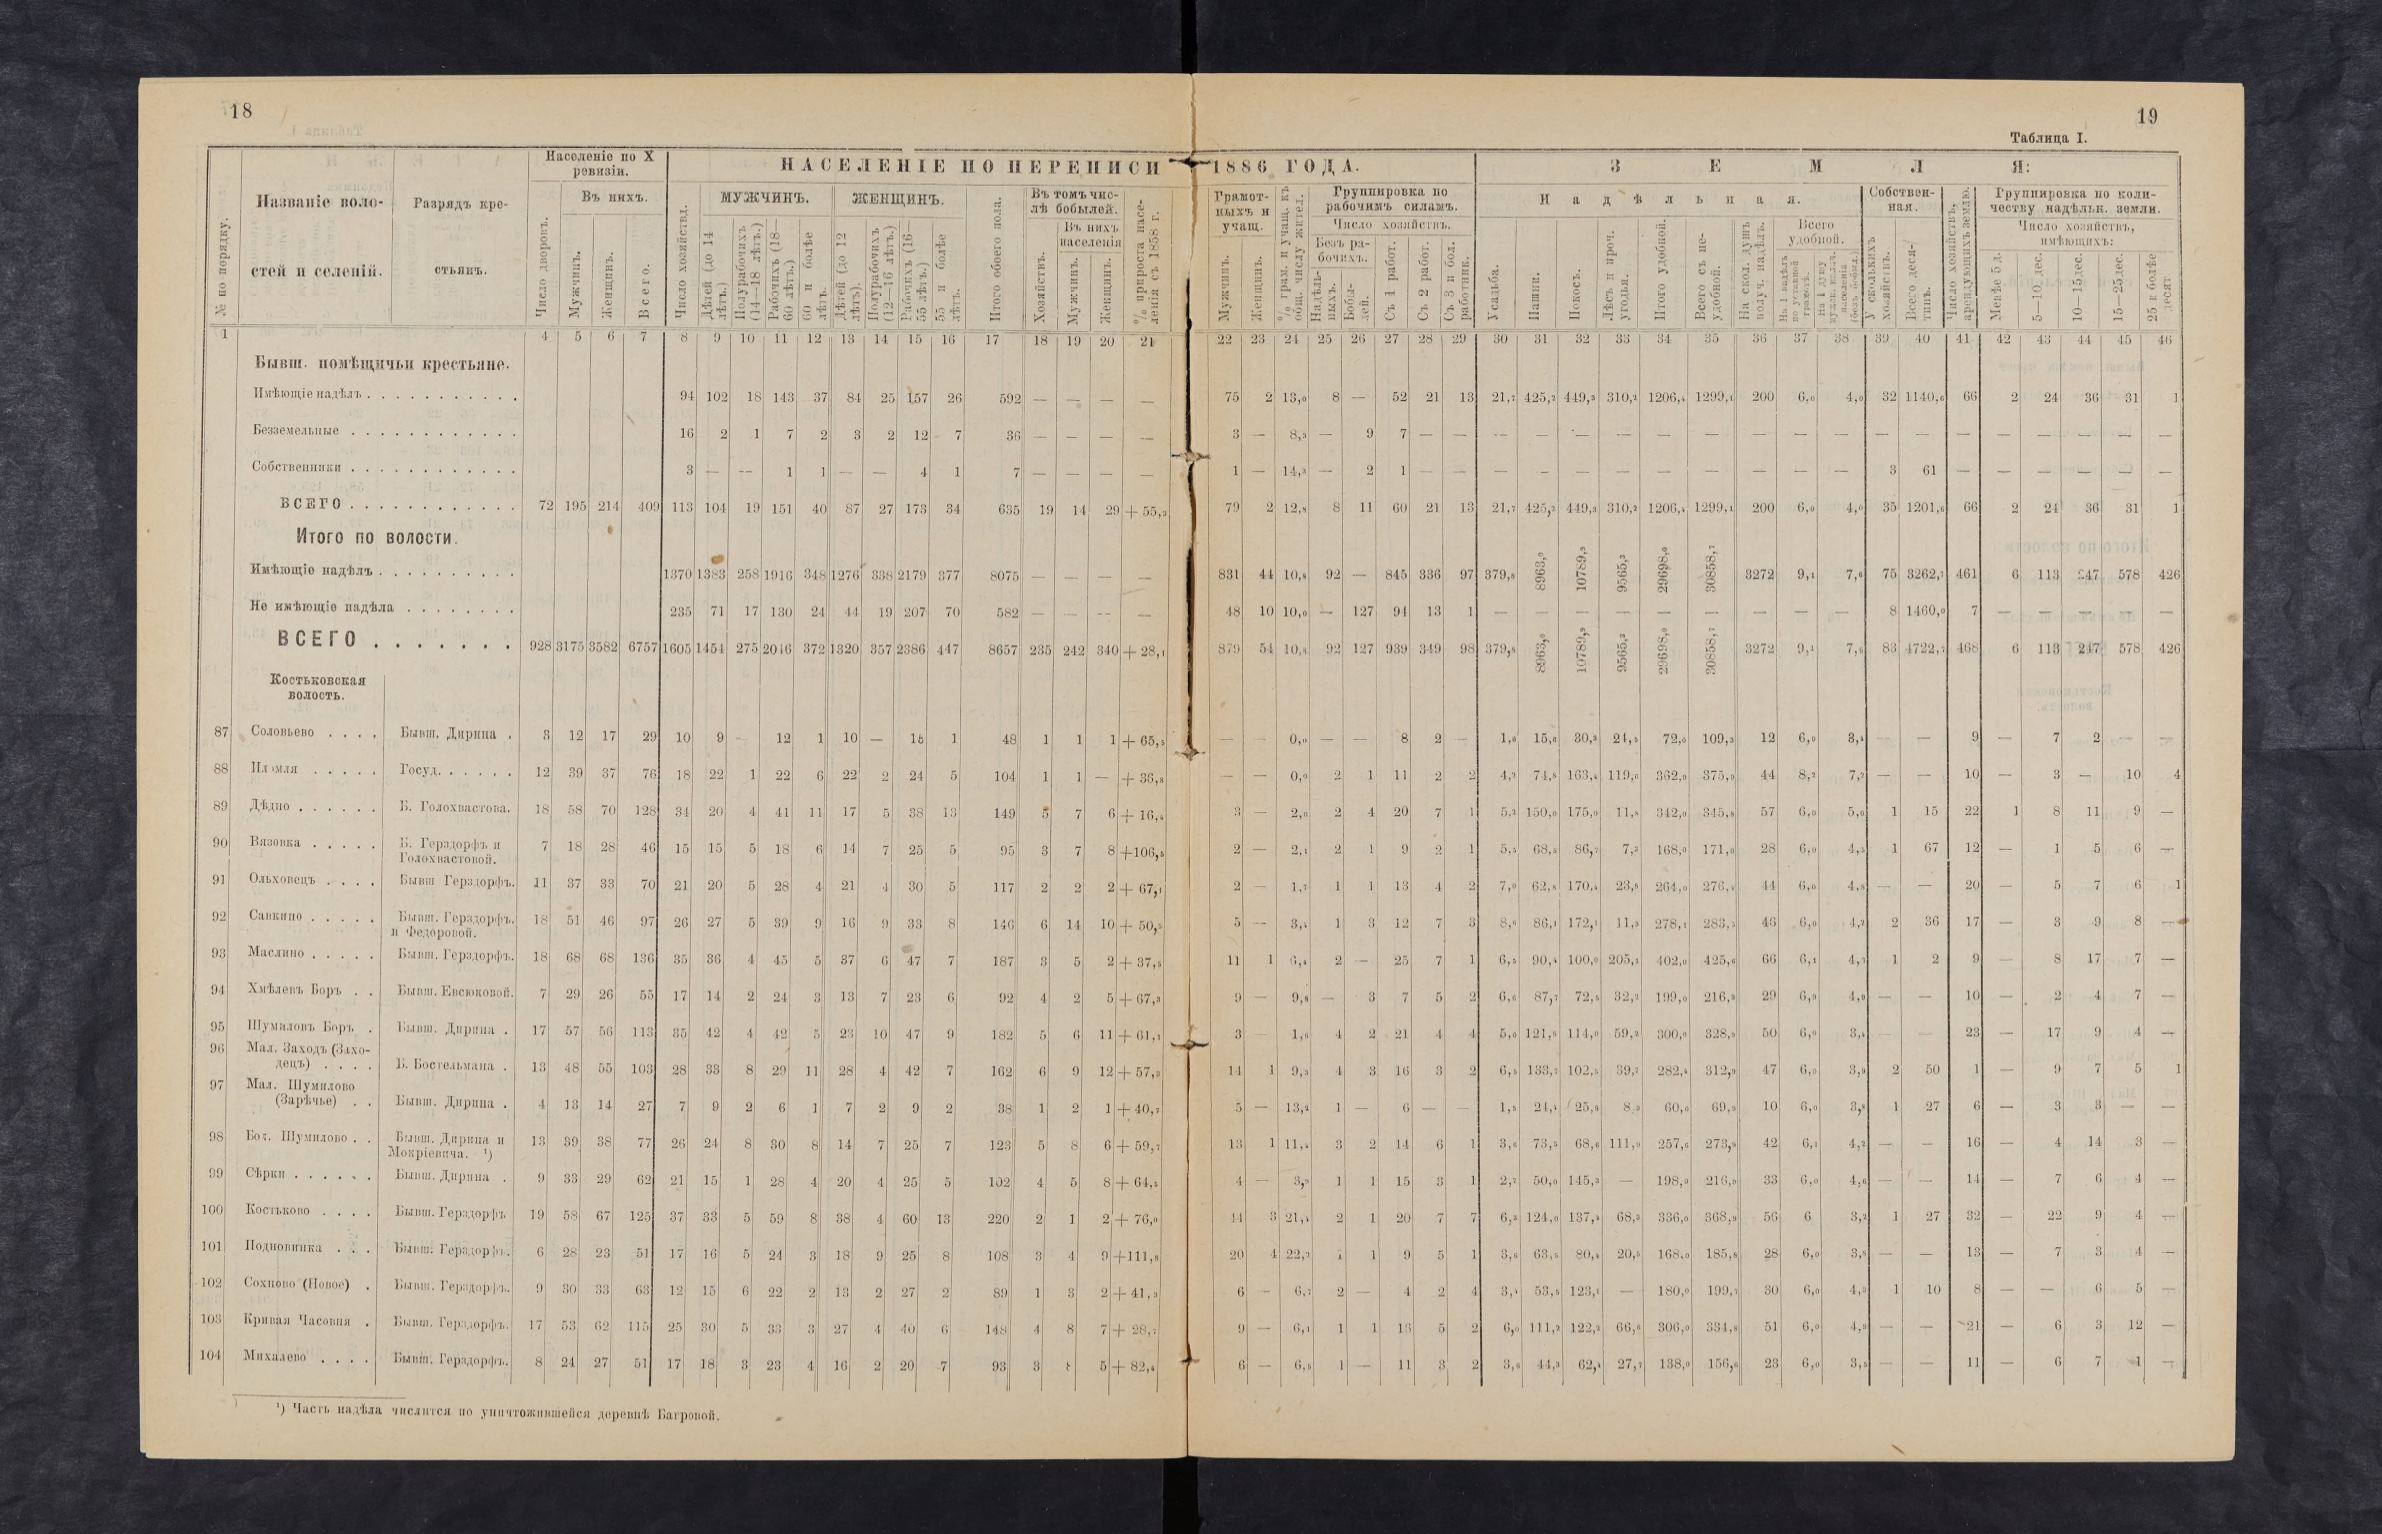 18
19
Таблица I.
№ по порядку.
Названіе воло-
стей и селеній.
Разрядъ кре-
стьянъ.
Населеніе по X
ревизіи.
Число дворовъ.
Въ нихъ.
Мужчинъ.
Женщинъ.
Всего.
НАСЕЛЕНІЕ ПО ПЕРЕПИСИ 1886 ГОДА.
Число хозяйствъ.
МУЖЧИНЪ.
Дѣтей (до 14 лѣтъ.)
Полурабочихъ (14—18 лѣтъ.)
Рабочихъ (18—60 лѣтъ.)
60 и болѣе лѣтъ.
ЖЕНЩИНЪ.
Дѣтей (до 12 лѣтъ).
Полурабочихъ (12—16 лѣтъ.)
Рабочихъ (16—55 лѣтъ.)
55 и болѣе лѣтъ.
Итого обоего пола.
Въ томъ чис-
лѣ бобылей.
Хозяйствъ.
Въ нихъ
населенія
Мужчинъ.
Женщинъ.
% прироста насе-
ленія съ 1858 г.
Грамот-
ныхъ и
учащ.
Мужчинъ.
Женщинъ.
% грам. и учащ. къ
общ. числу жител.
Группировка по
рабочимъ силамъ.
Число хозяйствъ.
Безъ ра-
бочихъ.
Надѣль-
ныхъ.
Бобы-
лей.
Съ 1 работ.
Съ 2 работ.
Съ 3 и бол.
работник.
ЗЕМЛЯ:
Надѣльная.
Усадьба.
Пашни.
Покосъ.
Лѣсъ и проч.
угодья.
Итого удобной.
Всего съ не-
удобной.
На скол. душъ
получ. надѣлъ.
Всего
удобной.
На 1 надѣлъ
по уставной
грамотѣ.
На 1 душу
муж. налич.
населенія
(безъ бобыл.)
Собствен-
ная.
У сколькихъ
хозяйствъ.
Всего деся-
тинъ.
Число хозяйствъ,
арендующихъ землю.
Группировка по коли-
честву надѣльн. земли.
Число хозяйствъ,
имѣющихъ:
Менѣе 5 д.
5—10 дес.
10—15 дес.
15—25 дес.
25 и болѣе
десят
1 4 5 6 7 8 9 10 11 12 13 14 15 16 17 18 19 20 21 22 23 24 25 26 27 28 29 30 31 32 33 34 35 36 37 38 39 40 41 42 43 44 45 46
Бывш. помѣщичьи крестьяне.
Имѣющіе надѣлъ . . . 94 102 18 143 37 84 25 157 26 592 — — — — 75 2 13,0 8 — 52 21 13 21,7 425,2 449,3 310,2 1206,4 1299,1 200 6,0 4,0 32 1140,6 66 2 24 36 31 1
Безземельные . . . 16 2 1 7 2 3 2 12 7 36 — — — — 3 — 8,3 — 9 7 — — — — — — — — — — — — — — — — — — —
Собственники . . . 3 — — 1 1 — — 4 1 7 — — — — 1 — 14,3 — 2 1 — — — — — — — — — — — 3 61 — — — — — —
ВСЕГО . . . 72 195 214 409 113 104 19 151 40 87 27 173 34 635 19 14 29 + 55,3 79 2 12,8 8 11 60 21 13 21,7 425,2 449,3 310,2 1206,4 1299,1 200 6,0 4,0 35 1201,6 66 2 24 36 31 1
Итого по волости.
Имѣющіе надѣлъ . . . 1370 1383 258 1916 348 1276 338 2179 377 8075 — — — — 831 44 10,8 92 — 845 336 97 379,8 8963,0 10789,9 9565,3 29698,0 30858,7 3272 9,1 7,6 75 3262,7 461 6 113 247 578 426
Не имѣющіе надѣла . . . 235 71 17 130 24 44 19 207 70 582 — — — — 48 10 10,0 — 127 94 13 1 — — — — — — — — — 8 1460,0 7 — — — — —
ВСЕГО . . . 928 3175 3582 6757 1605 1454 275 2046 372 1320 357 2386 447 8657 235 242 340 + 28,1 879 54 10,8 92 127 939 349 98 379,8 8963,0 10789,9 9565,3 29698,0 30858,7 3272 9,1 7,6 83 4722,7 468 6 113 247 578 426
Костьковская
волость.
87 Соловьево . . . . Бывш. Дирина . 3 12 17 29 10 9 — 12 1 10 — 15 1 48 1 1 1 + 65,5 — — 0,0 — — 8 2 — 1,6 15,6 30,3 24,5 72,0 109,3 12 6,0 3,4 — — 9 — 7 2 — —
88 Пломля . . . . . Госуд. . . . . . 12 39 37 76 18 22 1 22 6 22 2 24 5 104 1 1 — + 36,8 — — 0,0 2 1 11 2 2 4,2 74,8 163,4 119,6 362,0 375,0 44 8,2 7,2 — — 10 — 3 — 10 4
89 Дѣдно . . . . . . Б. Голохвастова. 18 58 70 128 34 20 4 41 11 17 5 38 13 149 5 7 6 + 16,4 3 — 2,0 2 4 20 7 1 5,2 150,0 175,0 11,8 342,0 345,8 57 6,0 5,0 1 15 22 1 8 11 9 —
90 Вязовка . . . . . Б. Герздорфъ и Голохвастовой. 7 18 28 46 15 15 5 18 6 14 7 25 5 95 3 7 8 +106,5 2 — 2,1 2 1 9 2 1 5,5 68,5 86,7 7,3 168,0 171,0 28 6,0 4,5 1 67 12 — 1 5 6 —
91 Ольховецъ . . . . Бывш Герздорфъ. 11 37 33 70 21 20 5 28 4 21 4 30 5 117 2 2 2 + 67,1 2 — 1,7 1 1 13 4 2 7,0 62,8 170,4 23,8 264,0 276,4 44 6,0 4,8 — — 20 — 5 7 6 1
92 Савкино . . . . . Бывш. Герздорфъ. и Федоровой. 18 51 46 97 26 27 5 39 9 16 9 33 8 146 6 14 10 + 50,5 5 — 3,4 1 3 12 7 3 8,6 86,1 172,1 11,3 278,1 283,5 46 6,0 4,2 2 36 17 — 3 9 8 —
93 Маслино . . . . . Бывш. Герздорфъ. 18 68 68 136 35 36 4 45 5 37 6 47 7 187 3 5 2 + 37,5 11 1 6,4 2 — 25 7 1 6,5 90,4 100,0 205,1 402,0 425,6 66 6,1 4,7 1 2 9 — 8 17 7 —
94 Хмѣлевъ Боръ . . Бывш. Евсюковой. 7 29 26 55 17 14 2 24 3 13 7 23 6 92 4 2 5 + 67,3 9 — 9,8 — 3 7 5 2 6,6 87,7 72,5 32,2 199,0 216,3 29 6,9 4,9 — — 10 — 2 4 7 —
95 Шумиловъ Боръ . Бывш. Дирина . 17 57 56 113 35 42 4 42 5 23 10 47 9 182 5 6 11 + 61,1 3 — 1,6 4 2 21 4 4 5,0 121,8 114,0 59,2 300,0 328,9 50 6,0 3,4 — — 23 — 17 9 4 —
96 Мал. Заходъ (Захо-
децъ) . . . . Б. Бостельмана . 13 48 55 103 28 33 8 29 11 28 4 42 7 162 6 9 12 + 57,3 14 1 9,3 4 3 16 3 2 6,5 133,7 102,5 39,7 282,4 312,9 47 6,0 3,9 2 50 1 — 9 7 5 1
97 Мал. Шумилово
(Зарѣчье) . . Бывш. Дирина . 4 13 14 27 7 9 2 6 1 7 2 9 2 38 1 2 1 + 40,7 5 — 13,2 1 — 6 — — 1,5 24,4 25,8 8,3 60,0 69,9 10 6,0 3,8 1 27 6 — 3 3 — —
98 Бол. Шумилово . . Бывш. Дирина и Мокріевича. ¹) 13 39 38 77 26 24 8 30 8 14 7 25 7 123 5 8 6 + 59,7 13 1 11,4 3 2 14 6 1 3,6 73,5 68,6 111,9 257,6 273,9 42 6,1 4,2 — — 16 — 4 14 3 —
99 Сѣрки . . . . . . Бывш. Дирина . 9 33 29 62 21 15 1 28 4 20 4 25 5 102 4 5 8 + 64,5 4 — 3,9 1 1 15 3 1 2,7 50,0 145,3 — 198,0 216,9 33 6,0 4,6 — — 14 — 7 6 4 —
100 Костьково . . . . Бывш. Герздорфъ 19 58 67 125 37 33 5 59 8 38 4 60 13 220 2 1 2 + 76,0 44 3 21,4 2 1 20 7 7 6,3 124,0 137,4 68,3 336,0 368,9 56 6 3,2 1 27 32 — 22 9 4 —
101 Подновинка . . . Бывш. Герздорфъ. 6 28 23 51 17 16 5 24 3 18 9 25 8 108 3 4 9 +111,8 20 4 22,2 1 1 9 5 1 3,6 63,5 80,4 20,5 168,0 185,8 28 6,0 3,8 — — 13 — 7 3 4 —
102 Сохново (Новое) . Бывш. Герздорфъ. 9 30 33 63 12 15 6 22 2 13 2 27 2 89 1 3 2 + 41,3 6 — 6,7 2 — 4 2 4 3,4 53,5 123,1 — 180,0 199,7 30 6,0 4,3 1 10 8 — — 6 5 —
103 Кривая Часовня . Бывш. Герздорфъ. 17 53 62 115 25 30 5 33 3 27 4 40 6 148 4 8 7 + 28,7 9 — 6,1 1 1 16 5 2 6,0 111,2 122,2 66,6 306,0 334,8 51 6,0 4,9 — — 21 — 6 3 12 —
104 Михалево . . . . Бывш. Герздорфъ. 8 24 27 51 17 18 3 23 4 16 2 20 7 93 3 8 5 + 82,4 6 — 6,5 1 — 11 3 2 3,6 44,3 62,4 27,7 138,0 156,6 23 6,0 3,5 — — 11 — 6 7 1 —
¹) Часть надѣла числится по уничтожившейся деревнѣ Багровой.